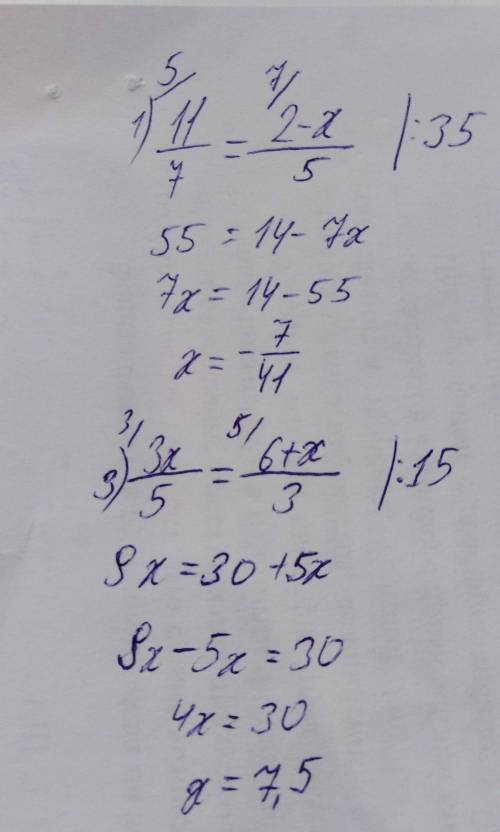 5/ 7/
1) 11/7 = 2-x/5 |:35
55 = 14 - 7x
7x = 14 - 55
x = -7/41
3/ 5/
3) 3x/5 = 6+x/3 |:15
9x = 30 + 5x
9x - 5x = 30
4x = 30
x = 7,5